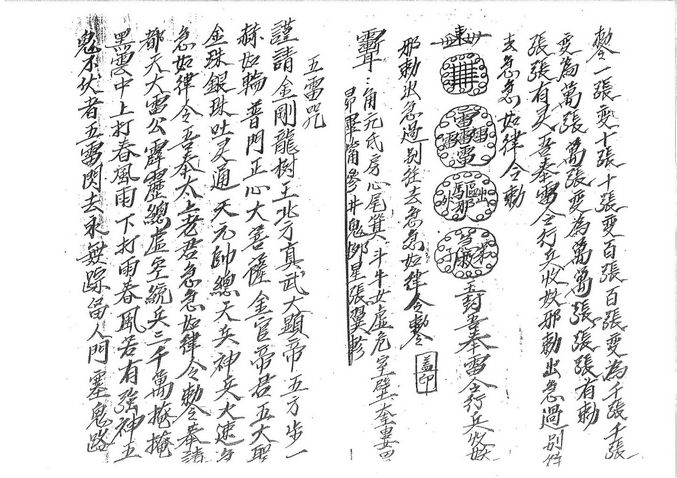 勅一張变十張十張变百張百張变為千張千張
变為萬張萬張变為萬萬張張張有勅
張張有灵吾奉雷令行兵收妖邪勅出急過別
去急急如律令勅
玉封 吾奉雷令行兵收妖
邪勅出急過別往去急急如律令勅 蓋印
角亢氐房心尾箕 斗牛女虛危室壁 奎婁
昴畢觜參 井鬼柳星張翼軫
五雷咒
謹請金剛龍樹王北方真武大顯帝五方步一
赫如輪普門正心大菩薩金官帝君五大聖
金珠銀珠吐灵通天元帥總天兵神兵火速
急如律令吾奉太上老君急急如律令勅奉請
都天大雷公霹靂總虛空統兵三千萬掩掩
黑雲中上打春風雨下打雨春風若有強神
鬼不伏者五雷閃去永無踪留人門塞鬼路